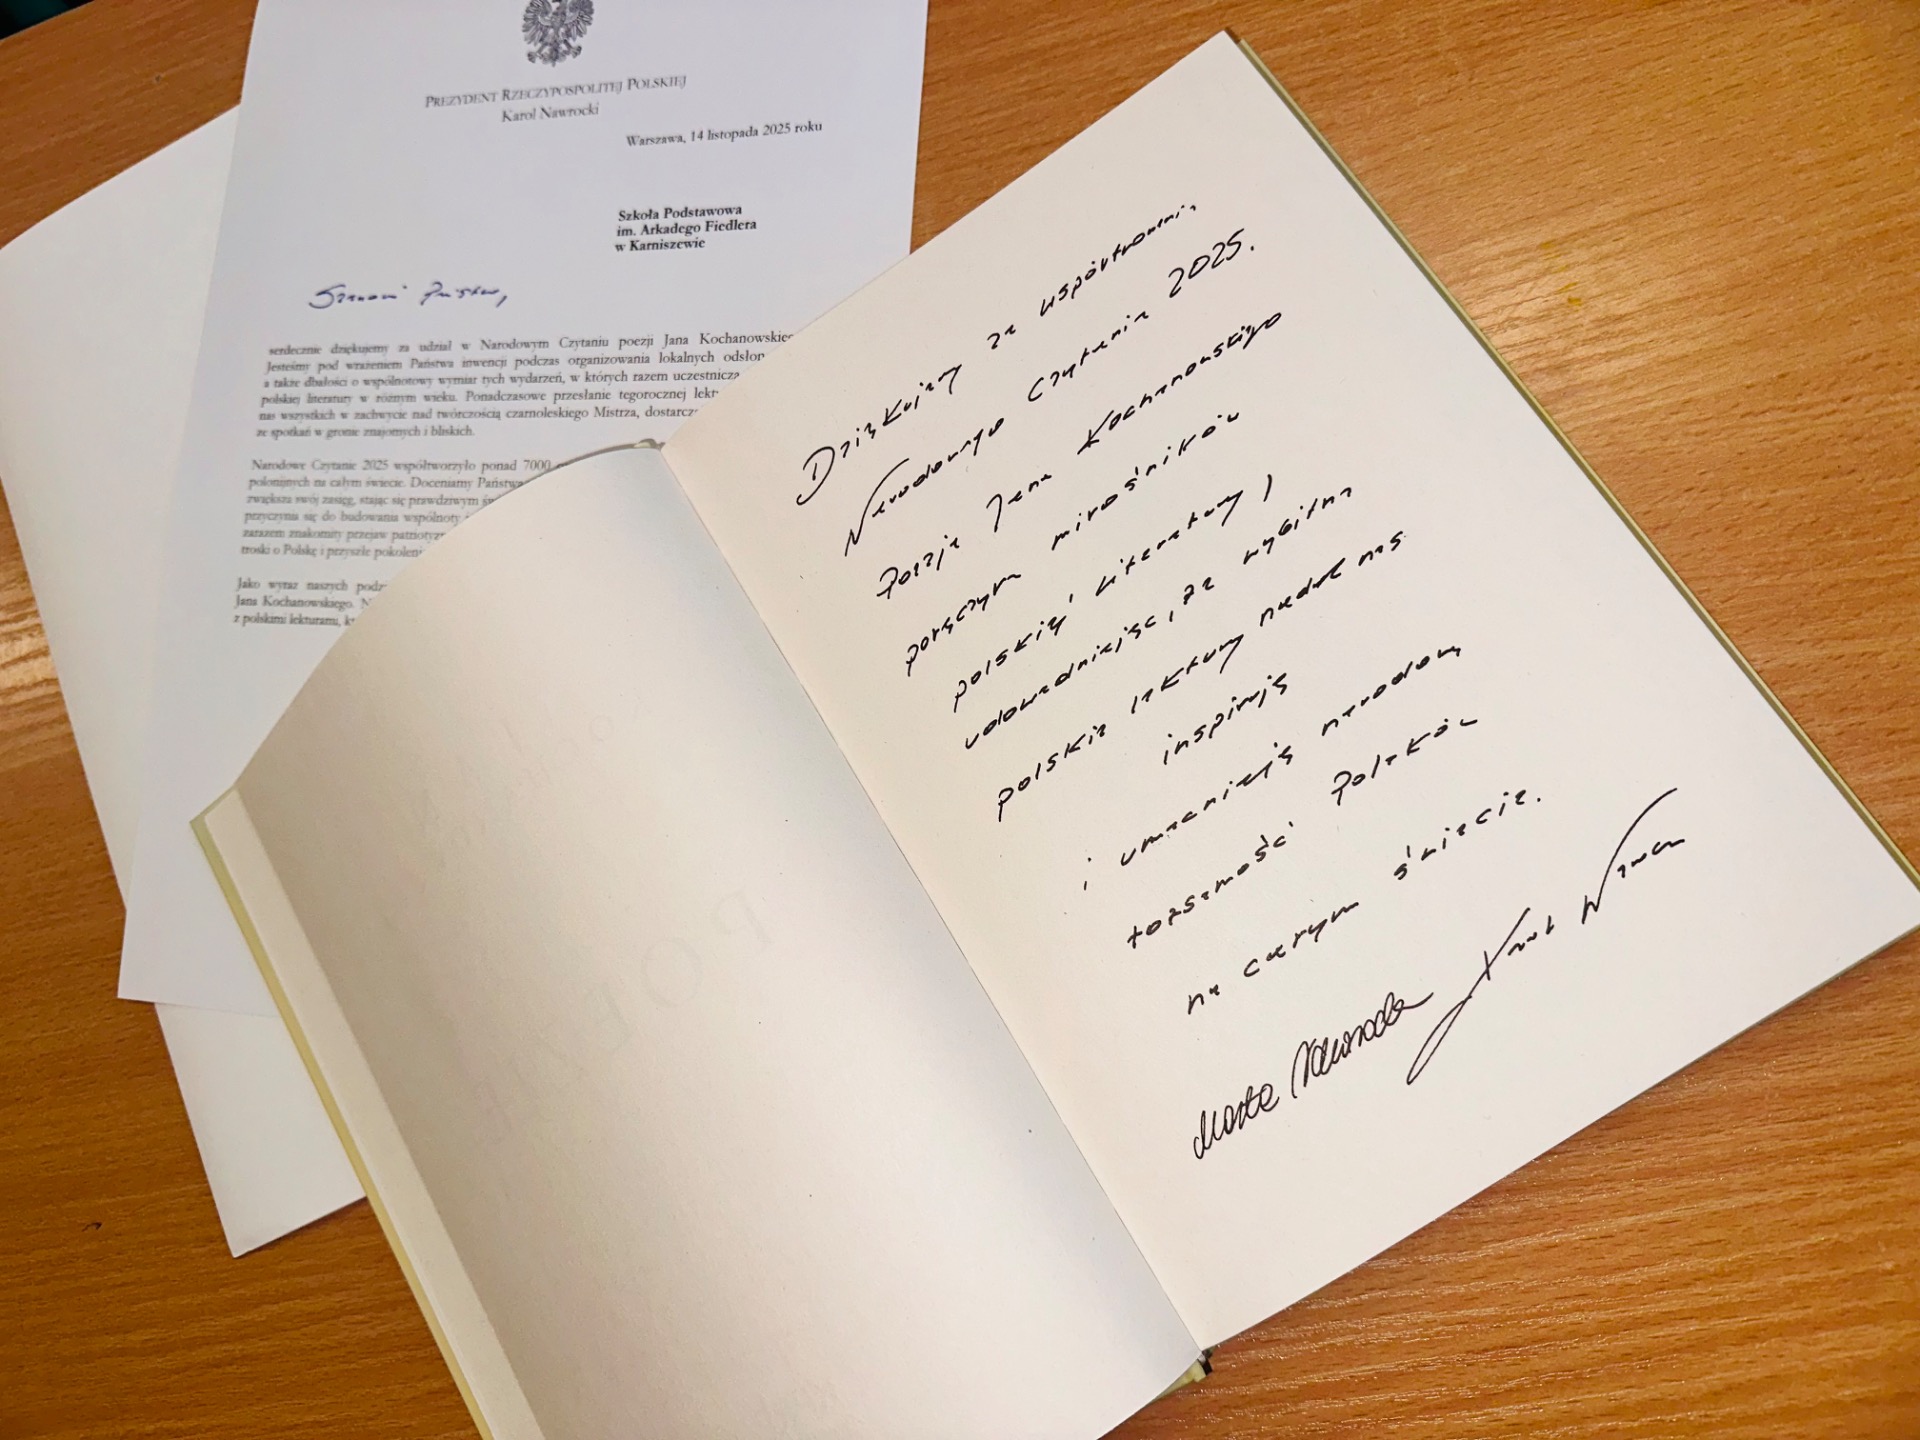 PREZYDENT RZECZYPOSPOLITEJ POLSKIEJ
Karol Nawrocki
Warszawa, 14 listopada 2025 roku
Szkoła Podstawowa
im. Arkadego Fiedlera
w Karniszewie
Szanowni Państwo,
serdecznie dziękujemy za udział w Narodowym Czytaniu poezji Jana Kochanowskieg
Jesteśmy pod wrażeniem Państwa inwencji podczas organizowania lokalnych odsłon
a także dbałości o wspólnotowy wymiar tych wydarzeń, w których razem uczestnicza
polskiej literatury w różnym wieku. Ponadczasowe przesłanie tegorocznej lektu
nas wszystkich w zachwycie nad twórczością czarnoleskiego Mistrza, dostarcza
ze spotkań w gronie znajomych i bliskich.
Narodowe Czytanie 2025 współtworzyło ponad 7000
polonijnych na całym świecie. Doceniamy Państwa
zwiększa swój zasięg, stając się prawdziwym
przyczynia się do budowania wspólnoty
zarazem znakomity przejaw patriotyz
troski o Polskę i przyszłe pokoleni
Jako wyraz naszych podz
Jana Kochanowskiego.
z polskimi lekturami,
Dziękujemy za współtworzenie
Narodowego Czytania 2025.
Poezja Jana Kochanowskiego
połączyła miłośników
polskiej literatury,
udowadniając, że wybitne
polskie lektury nadal nas
inspirują
i umacniają narodową
tożsamość Polaków
na całym świecie.
Marta Nawrocka Karol Nawrocki